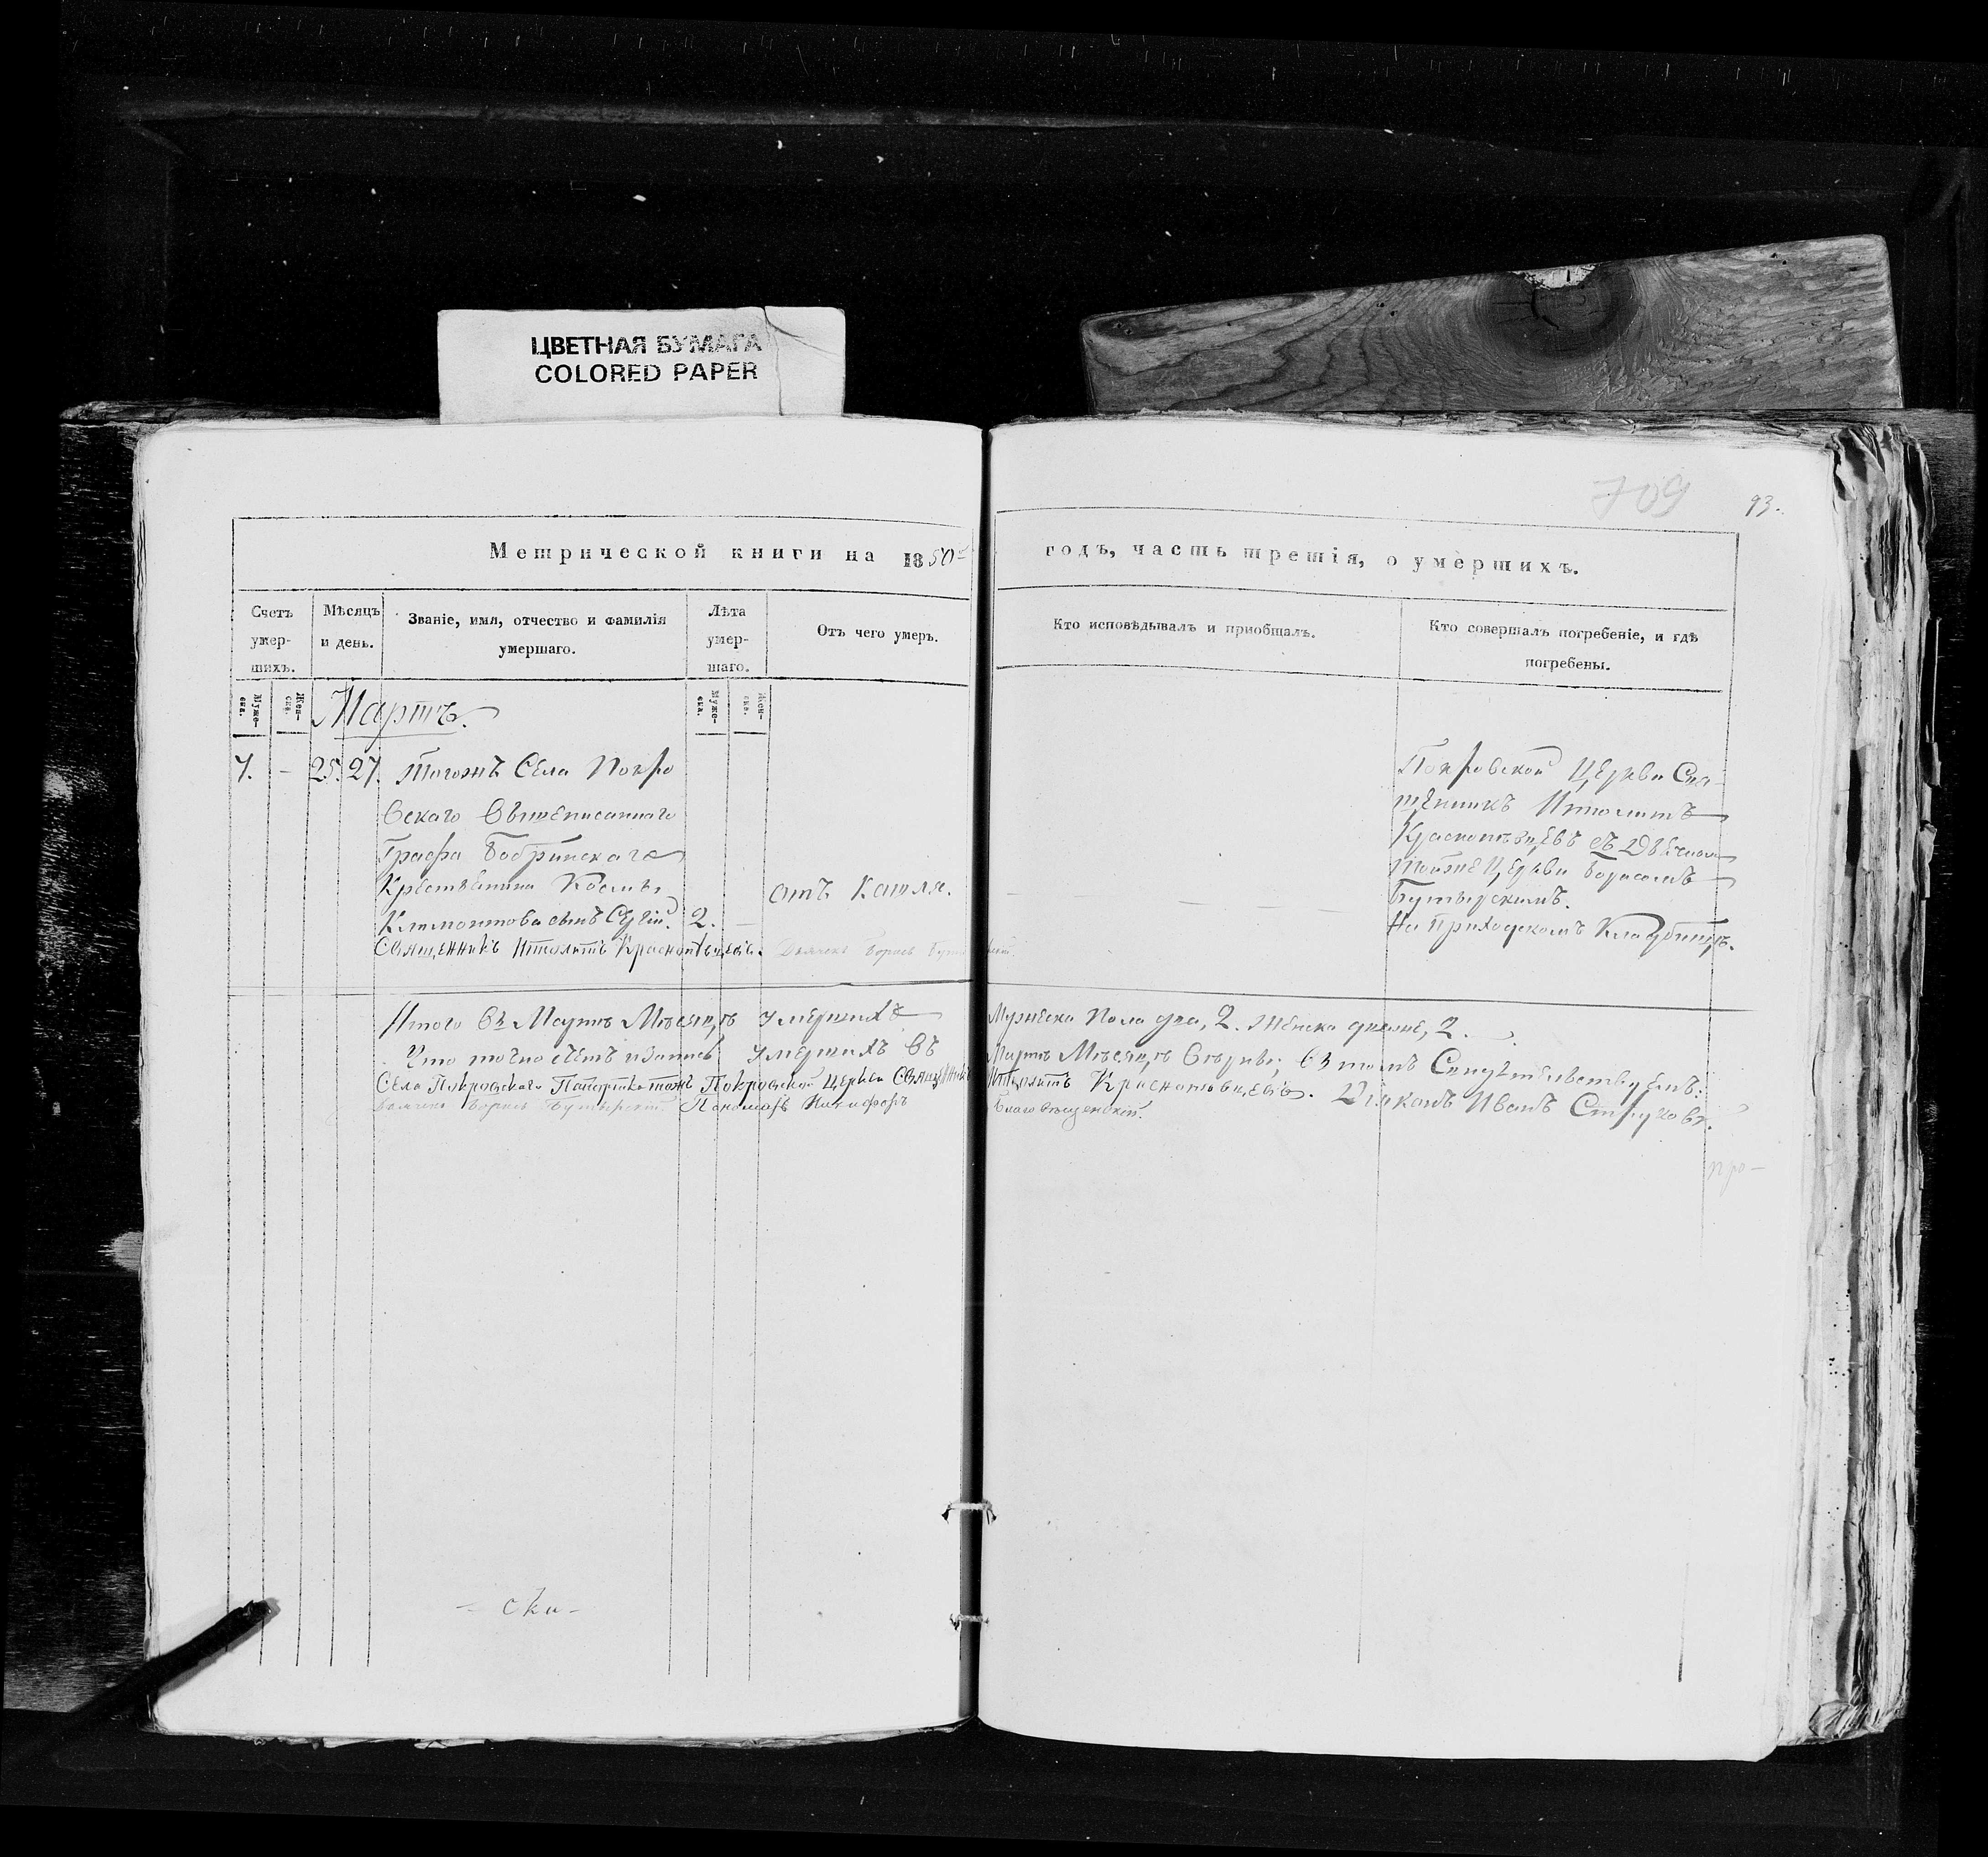 ЦВЕТНАЯ БУМАГА
COLORED PAPER
709
93.
Метрической книги на 1850
годъ, часть третія, о умершихъ.
Счетъ умер-шихъ.
Муже-ска.
Жен-ска.
Мѣсяцъ и день.
Званіе, имя, отчество и фамилія
умершаго.
Лѣта умер-шаго.
Муже-ска.
Жен-ска.
Отъ чего умеръ.
Кто исповѣдывалъ и пріобщалъ.
Кто совершалъ погребеніе, и гдѣ
погребены.
Мартъ.
7. – 25. 27. Тогожъ Села Покро
вскаго Вышеписаннаго
Графа Бобринскаго
Крестьянина Космы
Климонтова сынъ Сергій. 2. –
отъ Кашля.
Покровской Церкви Свя-
щенникъ Ипполитъ
Краснопѣвцевъ съ Дьячкомъ
тойже Церкви Борисомъ
Бутырскимъ.
На Приходскомъ Кладбищѣ.
Священникъ Ипполитъ Краснопѣвцевъ. Дьячекъ Борисъ
Итого въ Мартѣ Мѣсяцѣ умершихъ Мужеска пола два, 2. Женска двое, 2.
Что точно счетъ и запись умершихъ въ Мартѣ Мѣсяцѣ вѣрны; въ томъ Свидѣтельствуемъ:
Села Покровскаго тожъ Покровской Церкви Священникъ Ипполитъ Краснопѣвцевъ. Діаконъ Иванъ Струковъ.
Дьячекъ Борисъ Бутырскій. Пономарь Никифоръ Благовѣщенскій.
про-
- ски -